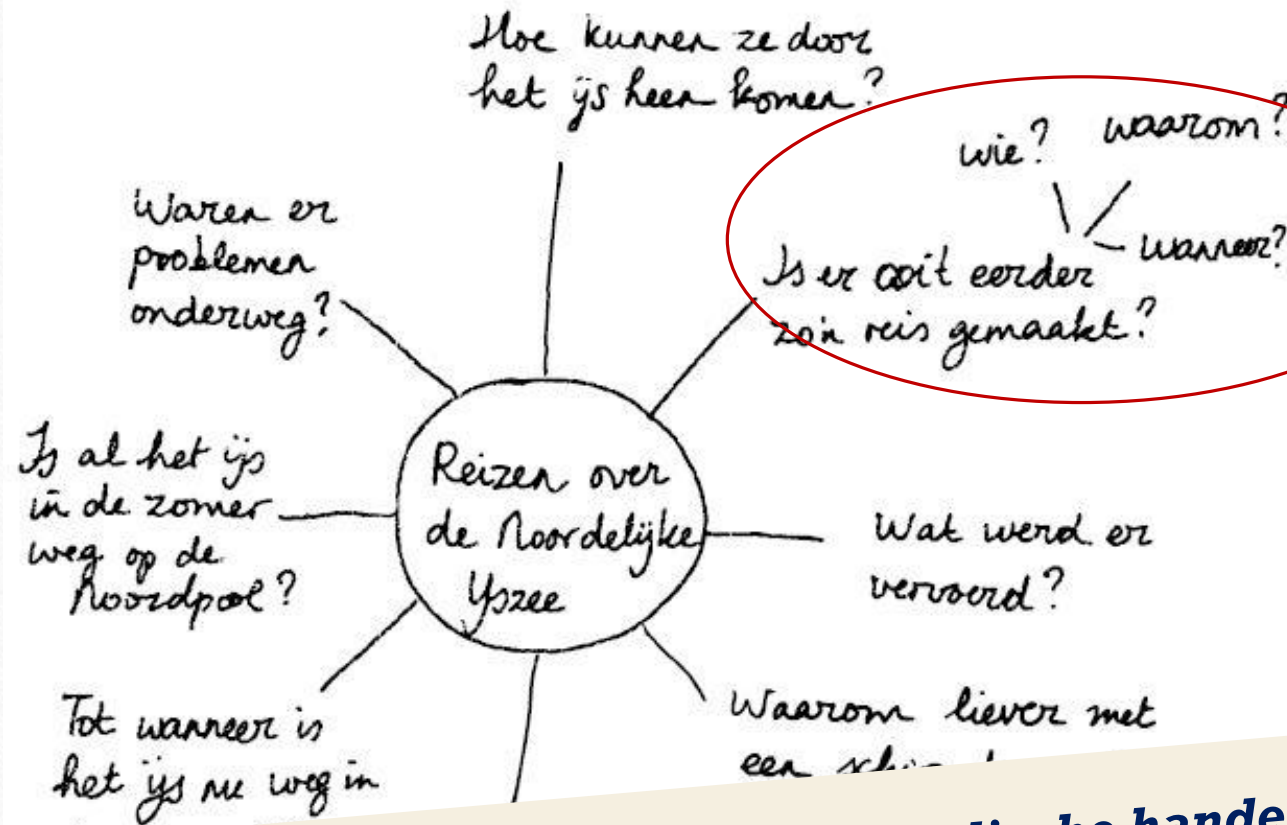 Hoe kunnen ze door
het ijs heen komen?
wie?
waarom?
wanneer?
Is er ooit eerder
zo'n reis gemaakt?
Waren er
problemen
onderweg?
Is al het ijs
in de zomer
weg op de
Noordpool?
Reizen over
de Noordelijke
IJszee
Wat werd er
vervoerd?
Tot wanneer is
het ijs nu weg in
Waarom liever met
een